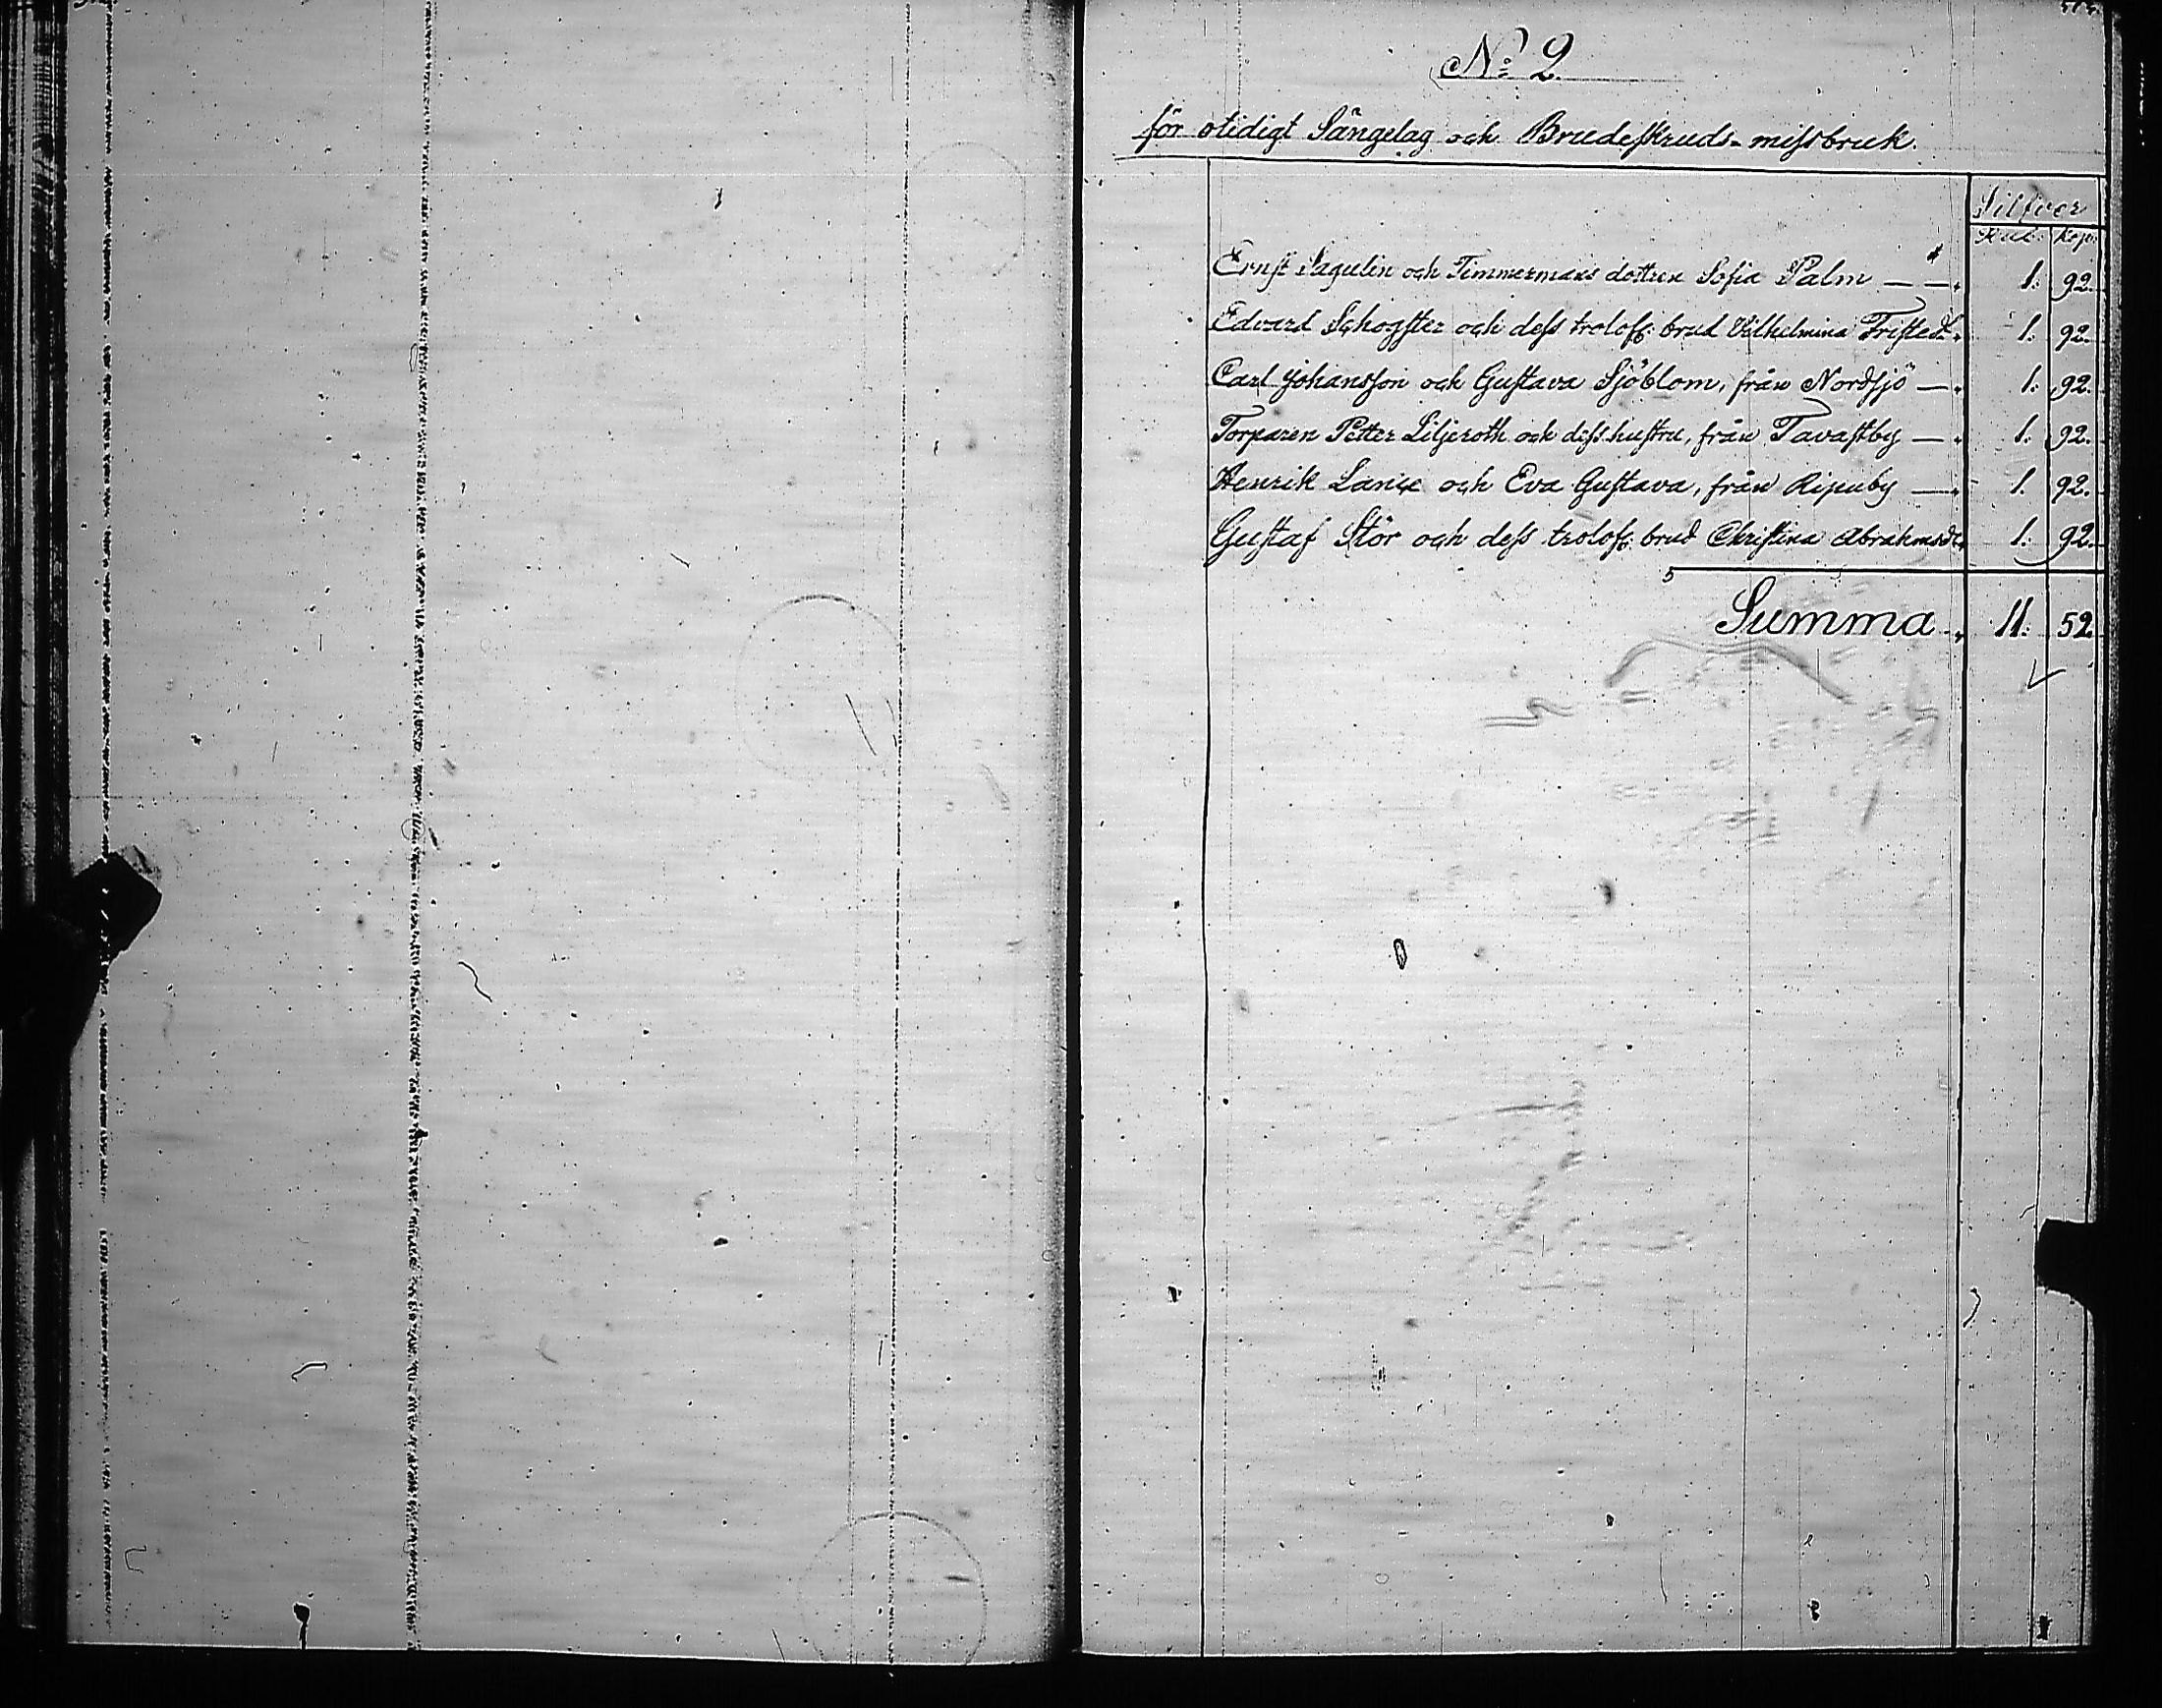 No 2.
för otidigt Sängelag och Brudeskruds-missbruk.
Silfver
Rub. Kop.
Ernst Sagulin och Timmermans dottren Sofia Palm — — 1. 92.
Edvard Schogster och dess trolof. brud Vilhelmina Fristedt 1. 92.
Carl Johansson och Gustava Sjöblom, från Nordsjö — 1. 92.
Torparen Petter Liljeroth och dess hustru, från Tavastby — 1. 92.
Henrik och Eva Gustava, från Ripuby — 1. 92.
Gustaf Stör och dess trolof. brud Christina Abrahmsdr 1. 92.
Summa 11. 52.